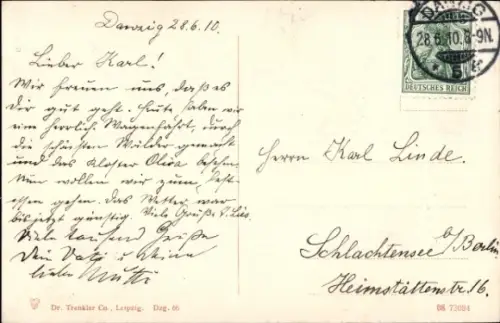 Danzig 28.6.10.
Lieber Karl!
Wir freuen uns, daß es
Dir gut geht. Heute haben wir
eine herrlich. Wagenfahrt, durch
die schönsten Wälder gemacht
und das Kloster Oliva besehen.
Nun wollen wir zum Fest-
essen gehen. Das Wetter war
bis jetzt günstig. Viele Grüße
Viele tausend Grüße
Dein Vati u. Deine
liebe Mutti
DANZIG
28.6.10.8-9N.
* 5
DEUTSCHES REICH
Herrn Karl Linde.
Schlachtensee b/Berlin
Heimstättenstr 16.
Dr. Trenkler Co., Leipzig. Dzg. 66
08 72684